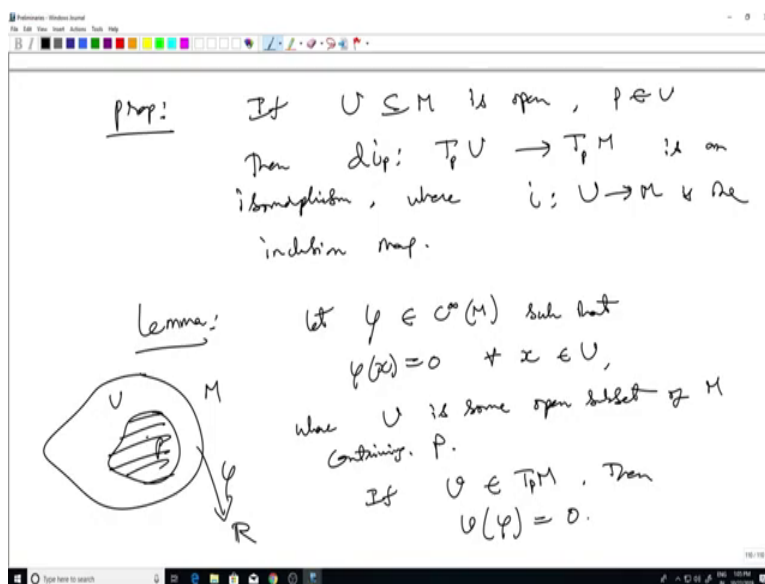 Preliminaries - Windows Journal
File Edit View Insert Actions Tools Help
prop: If U ⊆ M is open, p ∈ U
Then di_p: T_pU → T_pM is an
isomorphism, where i: U → M is the
inclusion map.
Lemma: let φ ∈ C^∞(M) such that
φ(x)=0 ∀ x ∈ U,
where U is some open subset of M
containing P.
If v ∈ T_pM. Then
v(φ) = 0.
U M
P
φ
R
110/110
Type here to search
ENG 1:05 PM